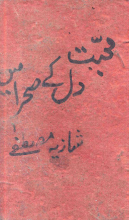 محبت
دل کے صحرا میں
شازیہ مصطفیٰ